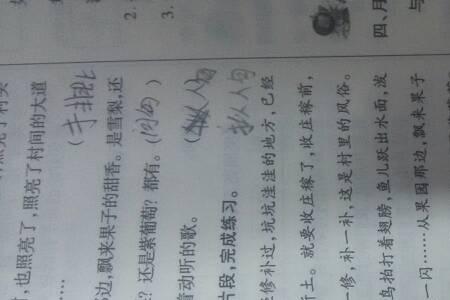 ，也照亮了，照亮了村间的大道
……
边，飘来果子的甜香。是雪梨，还
？还是紫葡萄？都有。（问句）
2.
着动听的歌。（
3.
拟人句
片段，完成练习。
修补过，坑坑洼洼的地方，已经
行土。就要收庄稼了，收庄稼前，
修，补一补，这是村里的风俗。
四、月
鸟拍打着翅膀，鱼儿跃出水面，泼
与
一闪……从果园那边，飘来果子